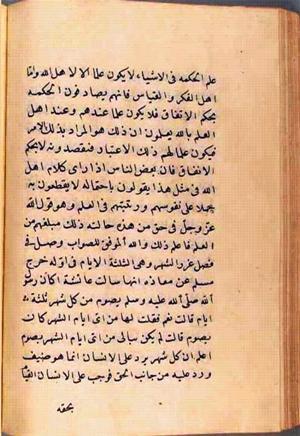 علم الحكمه فى الاشياء لا يكون علما الا لاهل الله واما
اهل الفكر والقياس فانهم يصادفون الحكمه
بحكم الاتفاق فلا يكون علما عندهم وعند اهل
العلم بالله يعلمون ان ذلك هو المراد بذلك الامر
فيكون علما لهم ذلك الاعتبار فنقصد ونه لا بحكم
الاتفاق فان بعض الناس اذا راى كلام اهل
الله فى مثل هذا يقولون باحتماله لا يقطعون به
حملا على نفوسهم ورتبتهم فى العلم وهو قول الله
عز وجل فى حق من هذه حالته ذلك مبلغهم من
العلم فاعلم ذلك والله الموفق للصواب وصل فى
فصل غرر الشهر وهى الثلثة الايام فى اوله خرج
مسلم عن معاذه انها سالت عائشة اكان رسول
الله صلى الله عليه وسلم يصوم من كل شهر ثلثة
ايام قالت نعم فقلت لها من اى ايام الشهر كان
يصوم قالت لم يكن يبالى من اى ايام الشهر يصوم
اعلم ان كل شهر يرد على الانسان انما هو ضيف
ورد عليه من جانب الحق فوجب على الانسان القيام
بحقه